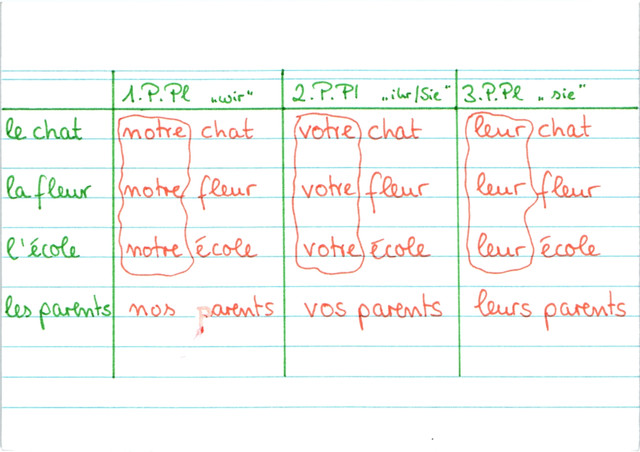 1.P.Pl „wir“ 2.P.Pl „ihr/Sie“ 3.P.Pl „sie“
le chat notre chat votre chat leur chat
la fleur notre fleur votre fleur leur fleur
l'école notre école votre école leur école
les parents nos parents vos parents leurs parents